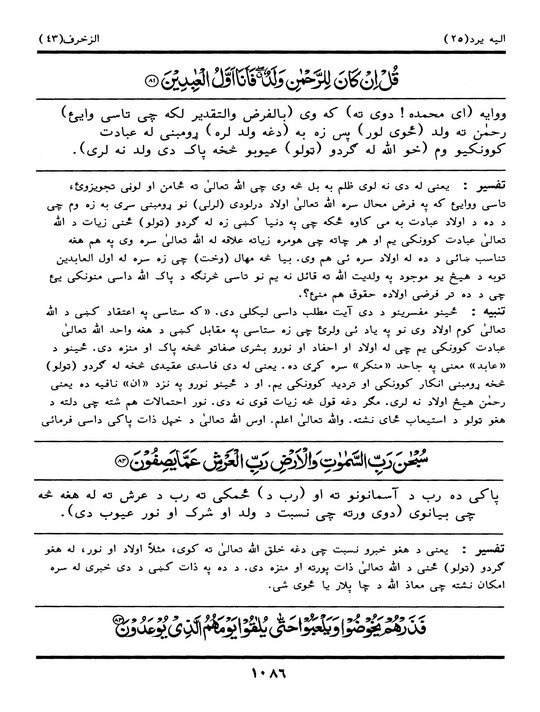 الیه یرد(۲۵)
الزخرف(۴۳)
قُلْ اِنْ كَانَ لِلرَّحْمٰنِ وَلَدٌ ۖ فَاَنَا اَوَّلُ الْعٰبِدِيْنَ ﴿۸۱﴾
ووایه (ای محمده! دوی ته) که وی (بالفرض والتقدیر لکه چی تاسی وایئ)
رحمٰن ته ولد (ځوی لور) پس زه به (دغه ولد لره) ړومبنی له عبادت
کوونکیو وم (خو الله له گردو (ټولو) عیوبو څخه پاک دی ولد نه لری).
تفسیر : یعنی له دی نه لوی ظلم به بل څه وی چی الله تعالیٰ ته ځامن او لونی تجویزوئ،
تاسی ووایئ که په فرض محال سره الله تعالیٰ اولاد درلودی (لرلی) نو ړومبنی سری به زه وم چی
د ده د اولاد عبادت به می کاوه ځکه چی په دنیا کښی زه له گردو (ټولو) ځنی زیات د الله
تعالیٰ عبادت کوونکی یم او هر چاته چی هومره زیاته علاقه له الله تعالیٰ سره وی په هم هغه
تناسب ښائی د ده له اولاد سره ئی هم وی. بیا څه مهال (وخت) چی زه سره له اول العابدین
توبه د هیڅ یو موجود په ولدیت الله ته قائل نه یم نو تاسی څرنگه د پاک الله داسی منونکی یئ
چی د ده تر فرضی اولاده حقوق هم منئ؟.
تنبیه : ځینو مفسرینو د دی آیت مطلب داسی لیکلی دی. «که ستاسی په اعتقاد کښی د الله
تعالیٰ کوم اولاد وی نو په یاد ئی ولرئ چی زه ستاسی په مقابل کښی د هغه واحد الله تعالیٰ
عبادت کوونکی یم چی له اولاد او احفاد او نورو بشری صفاتو څخه پاک او منزه دی. ځینو د
«عابد» معنی په جاحد «منکر» سره کری ده. یعنی له دی فاسدی عقیدی څخه له گردو (ټولو)
څخه ړومبنی انکار کوونکی او تردید کوونکی یم. او د ځینو نورو په نزد «ان» نافیه ده یعنی
رحمٰن هیڅ اولاد نه لری. مگر دغه قول څه زیات قوی نه دی. نور احتمالات هم شته چی دلته د
هغو ټولو د استیعاب ځای نشته. والله تعالیٰ اعلم. اوس الله تعالیٰ د خپل ذات پاکی داسی فرمائی
سُبْحٰنَ رَبِّ السَّمٰوٰتِ وَالْاَرْضِ رَبِّ الْعَرْشِ عَمَّا يَصِفُوْنَ ﴿۸۲﴾
پاکی ده رب د آسمانونو ته او (رب د) ځمکی ته رب د عرش ته له هغه څه
چی بیانوی (دوی ورته چی نسبت د ولد او شرک او نور عیوب دی).
تفسیر : یعنی د هغو خبرو نسبت چی دغه خلق الله تعالیٰ ته کوی، مثلاً اولاد او نور، له هغو
گردو (ټولو) ځنی د الله تعالیٰ ذات پورته او منزه دی. د ده په ذات کښی د دی خبری له سره
امکان نشته چی معاذ الله د چا پلار یا ځوی شی.
فَذَرْهُمْ يَخُوْضُوْا وَيَلْعَبُوْا حَتّٰى يُلٰقُوْا يَوْمَهُمُ الَّذِيْ يُوْعَدُوْنَ ﴿۸۳﴾
۱۰۸۶